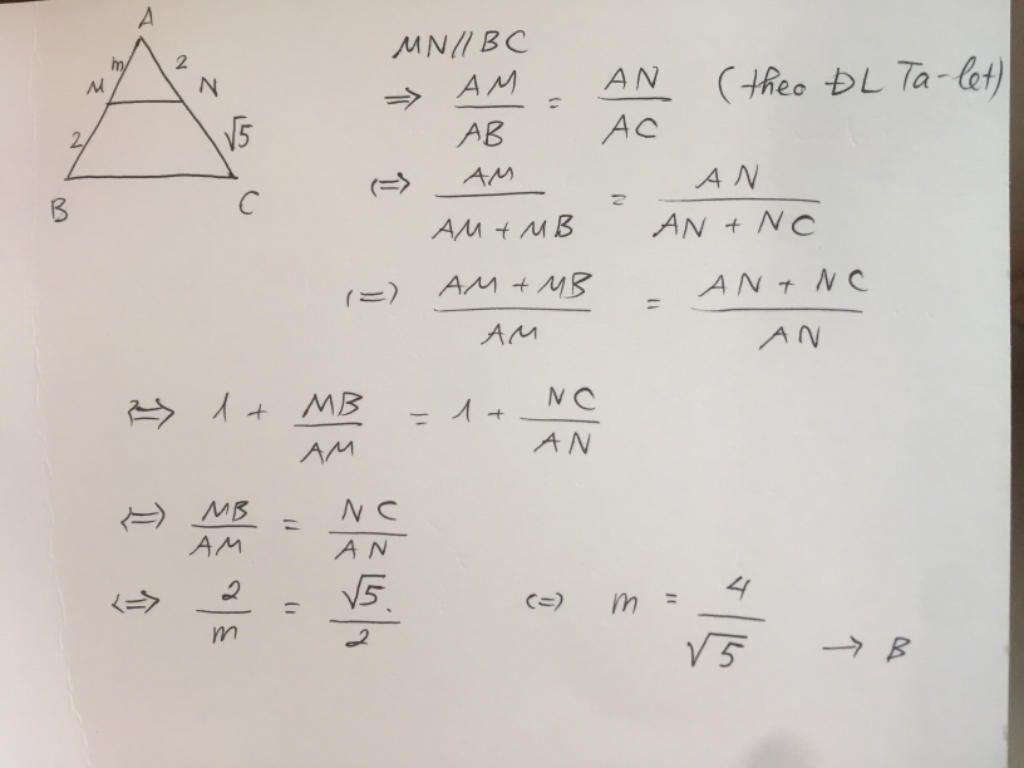 A
m 2
M N
2 √5
B C
MN//BC
=> AM/AB = AN/AC (theo ĐL Ta-let)
(=> AM/AM + MB = AN/AN + NC
(=) AM + MB/AM = AN + NC/AN
=> 1 + MB/AM = 1 + NC/AN
<=> MB/AM = NC/AN
<=> 2/m = √5./2 (=) m = 4/√5 → B